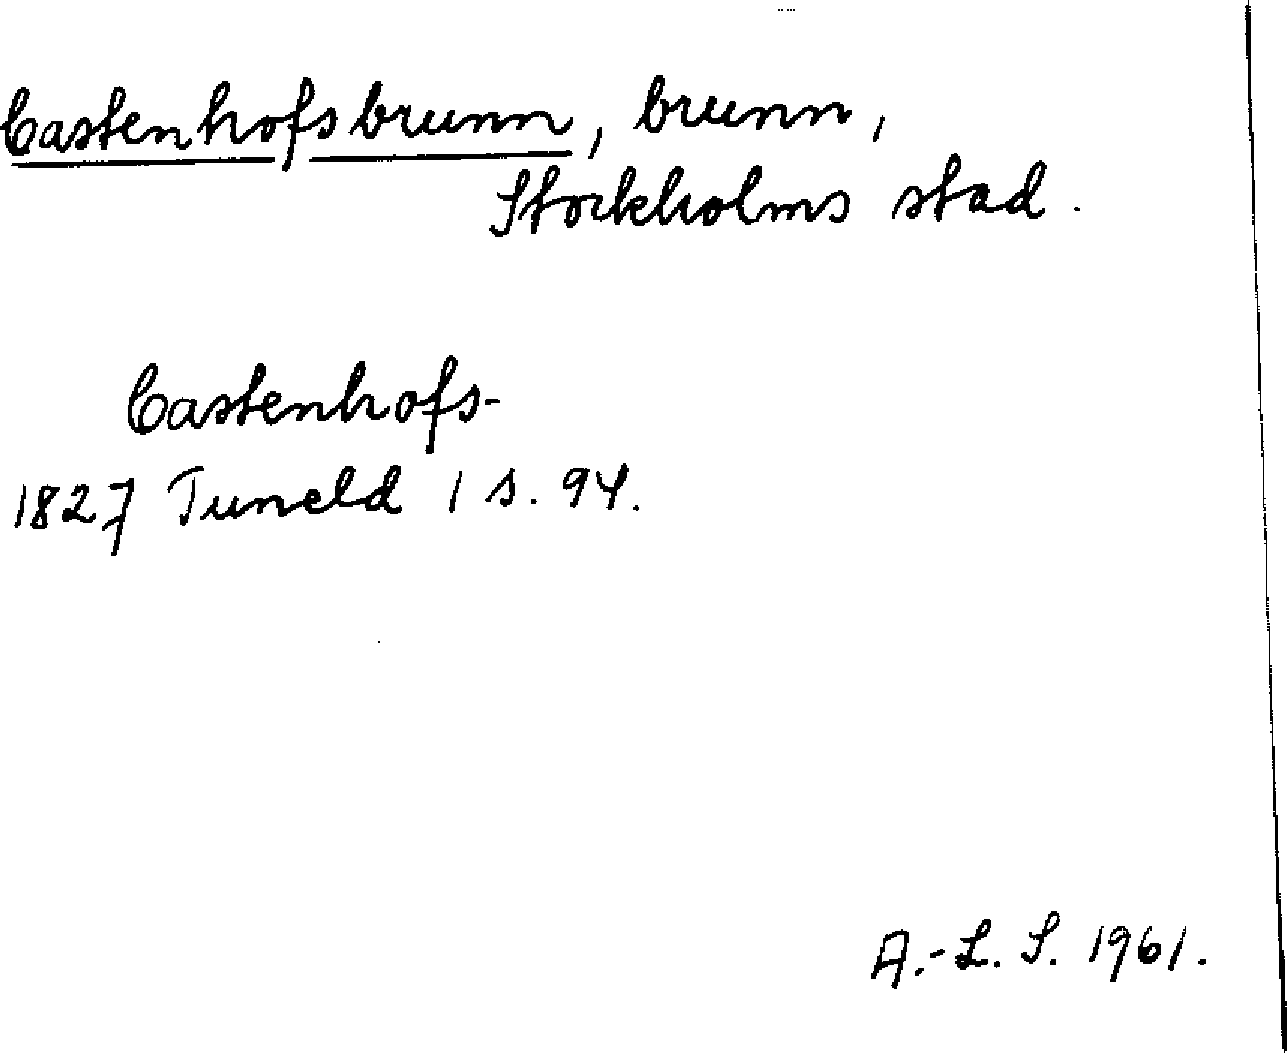 Castenhofsbrunn, brunn,
Stockholms stad.
Castenhofs-
1827 Tuneld 1 s. 94.
A.-L. S. 1961.